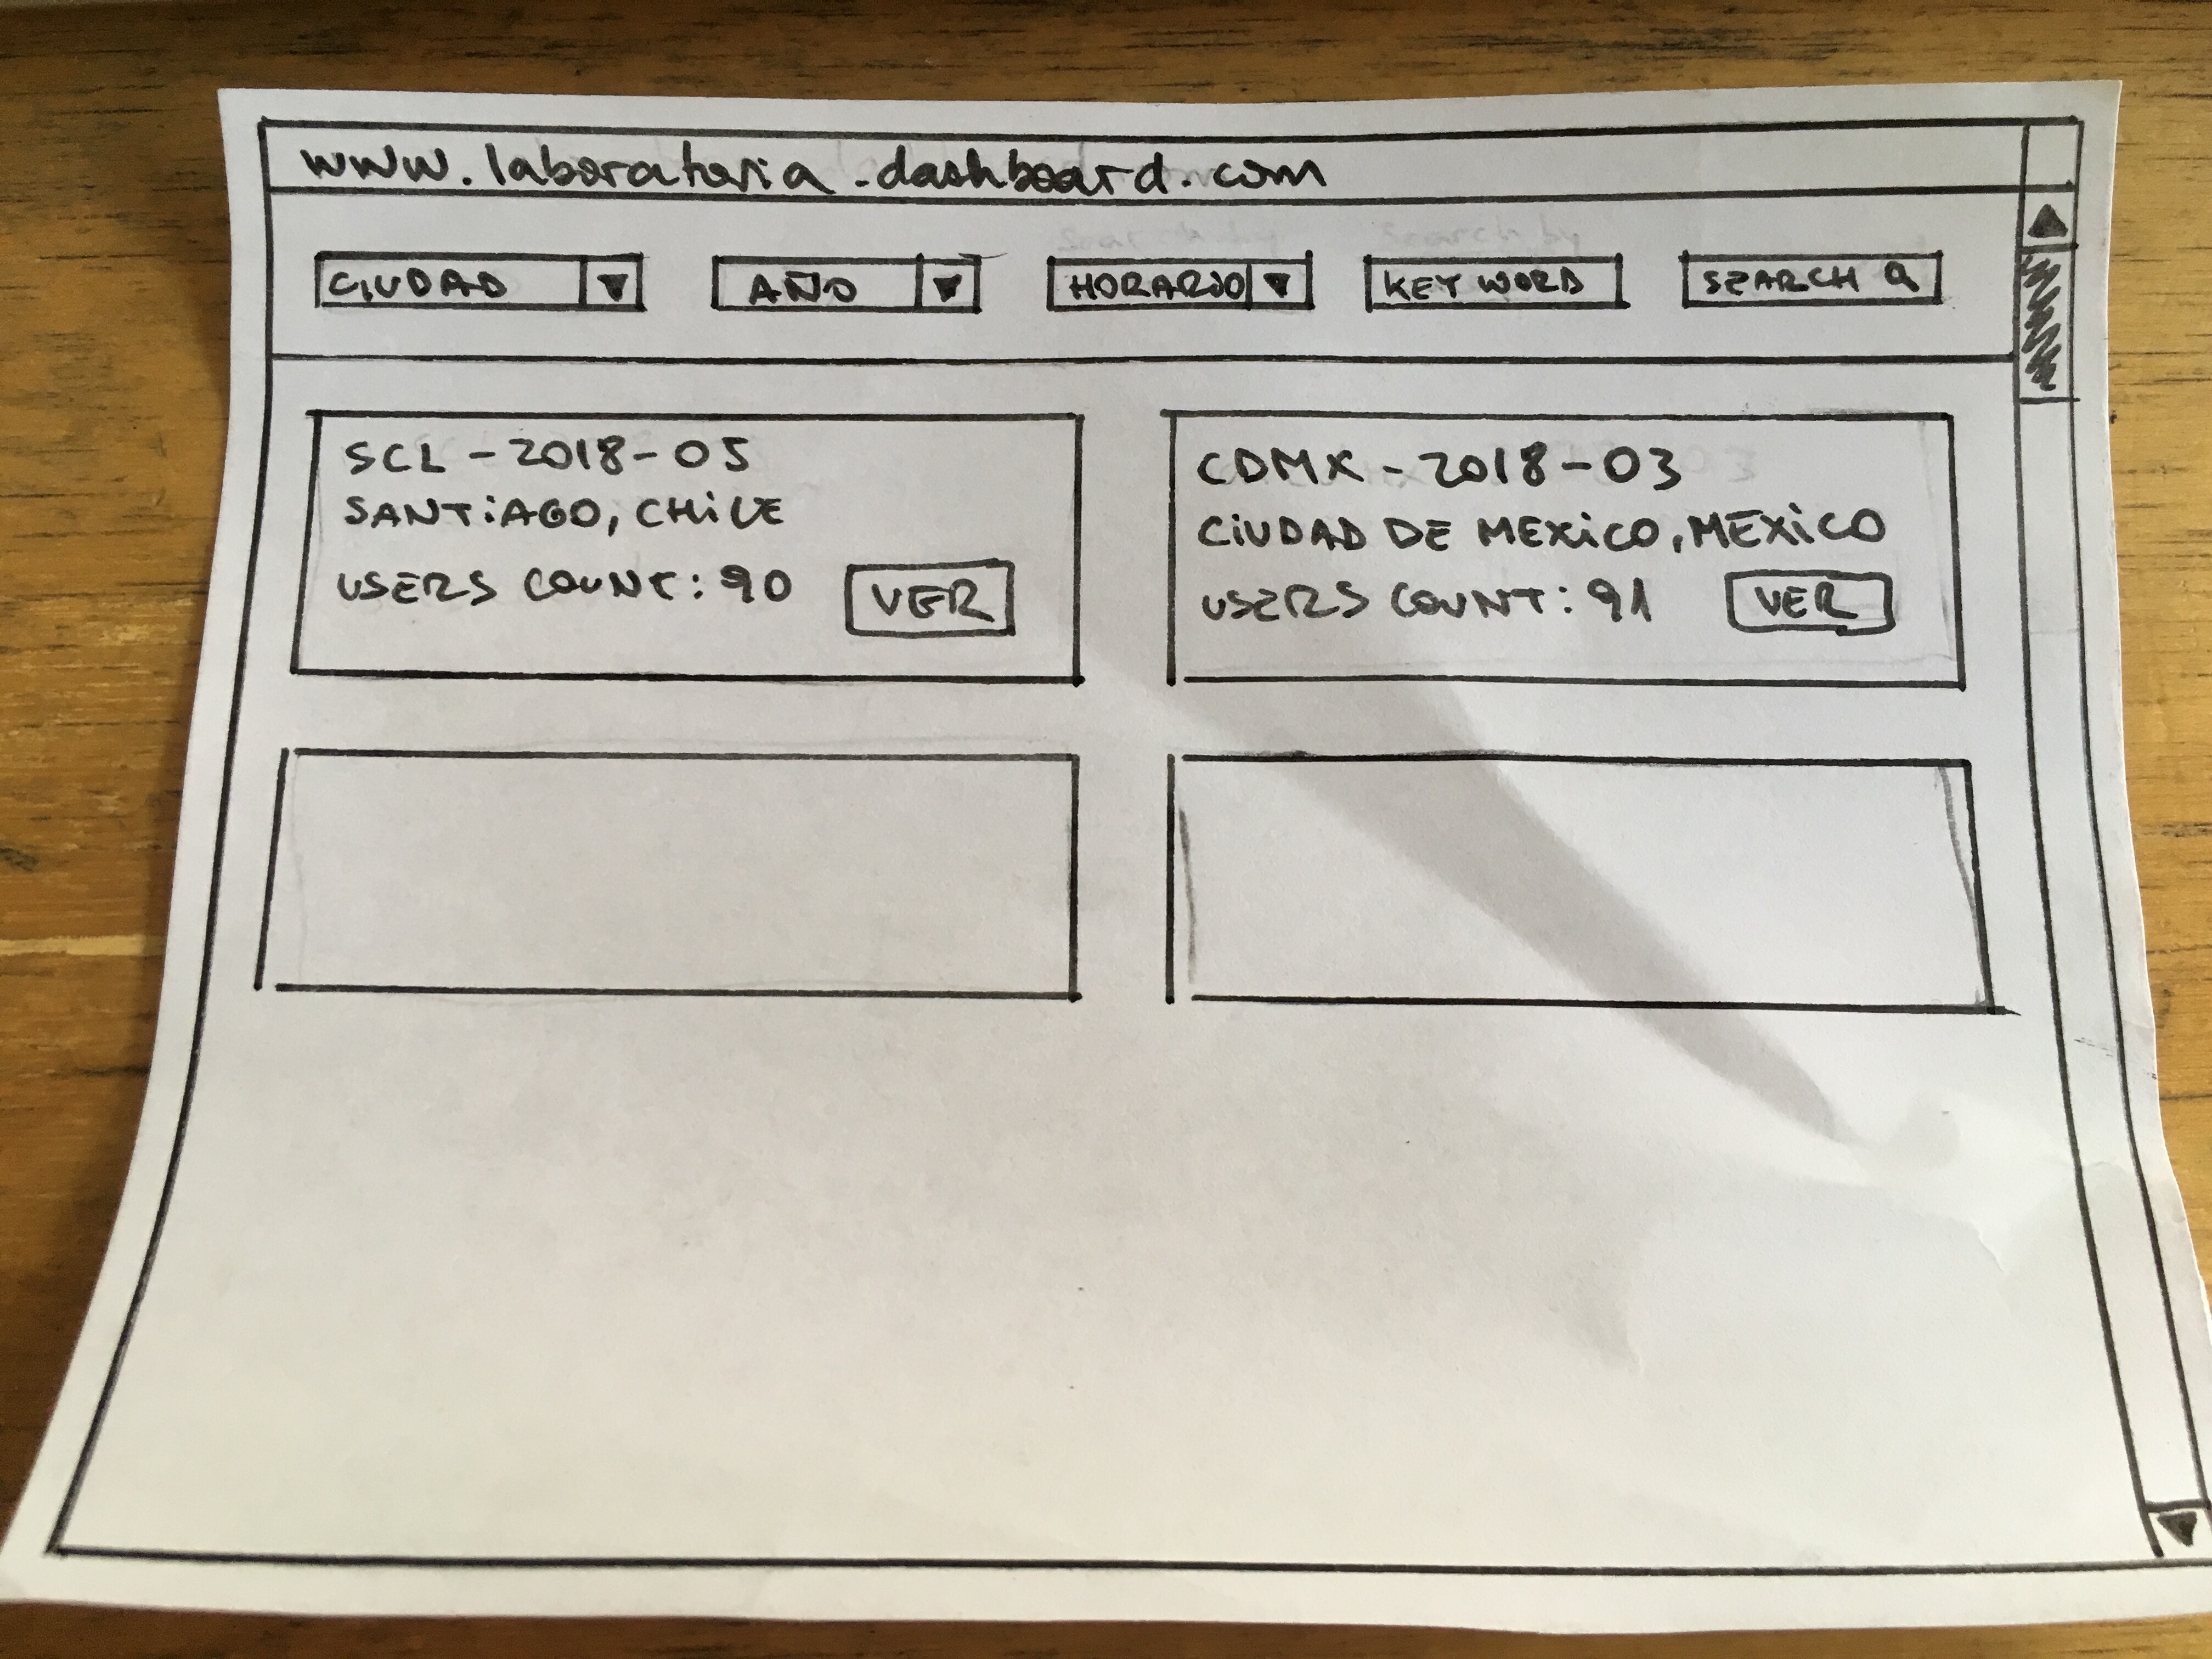 www.laboratoria.dashboard.com
CIUDAD AÑO HORARIO KEY WORD SEARCH
SCL - 2018-05
SANTIAGO, CHILE
USERS COUNT: 90 VER
CDMX - 2018-03
CIUDAD DE MEXICO, MEXICO
USERS COUNT: 91 VER